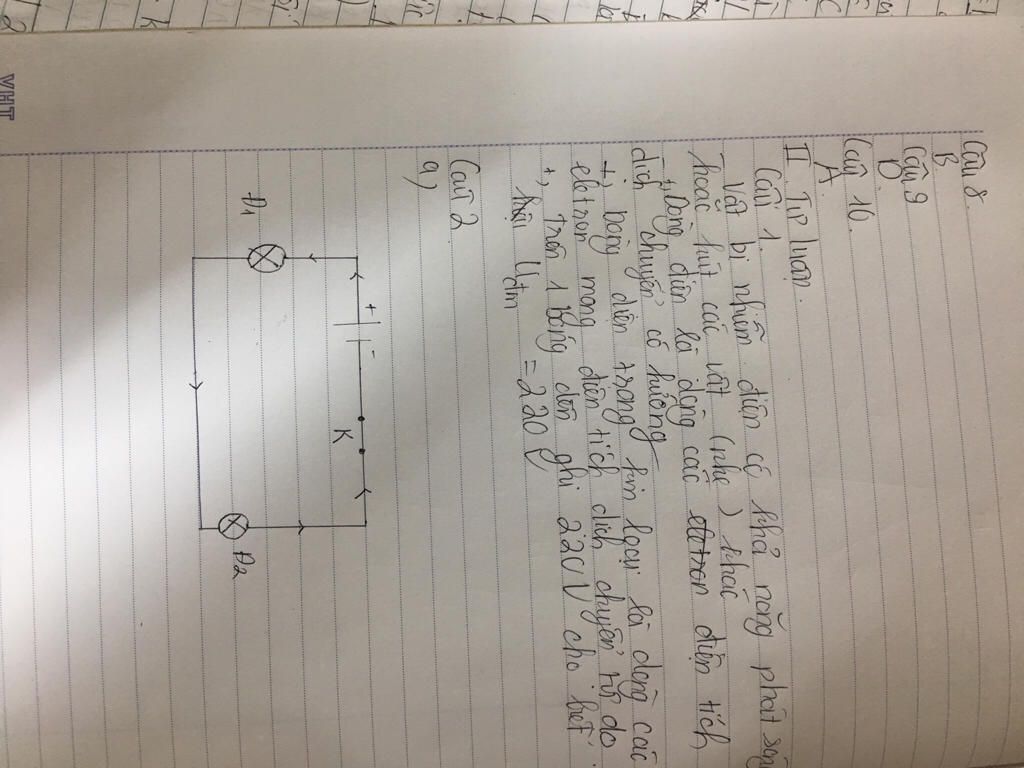 Câu 8.
B.
Câu 9
D.
Câu 10.
A.
II Tự luận.
Câu 1.
Vật bị nhiễm điện có khả năng phát sáng
hoặc hút các vật (nhẹ) khác
+, Dòng điện là dòng các điện tích
dịch chuyển có hướng
+, Dòng điện trong kim loại là dòng các
eletron mang điện tích dịch chuyển tự do
+, Trên 1 bóng đèn ghi 220V cho biết
Uđm = 220V
Câu 2
a)
+ -
K
Đ1
Đ2
VHT